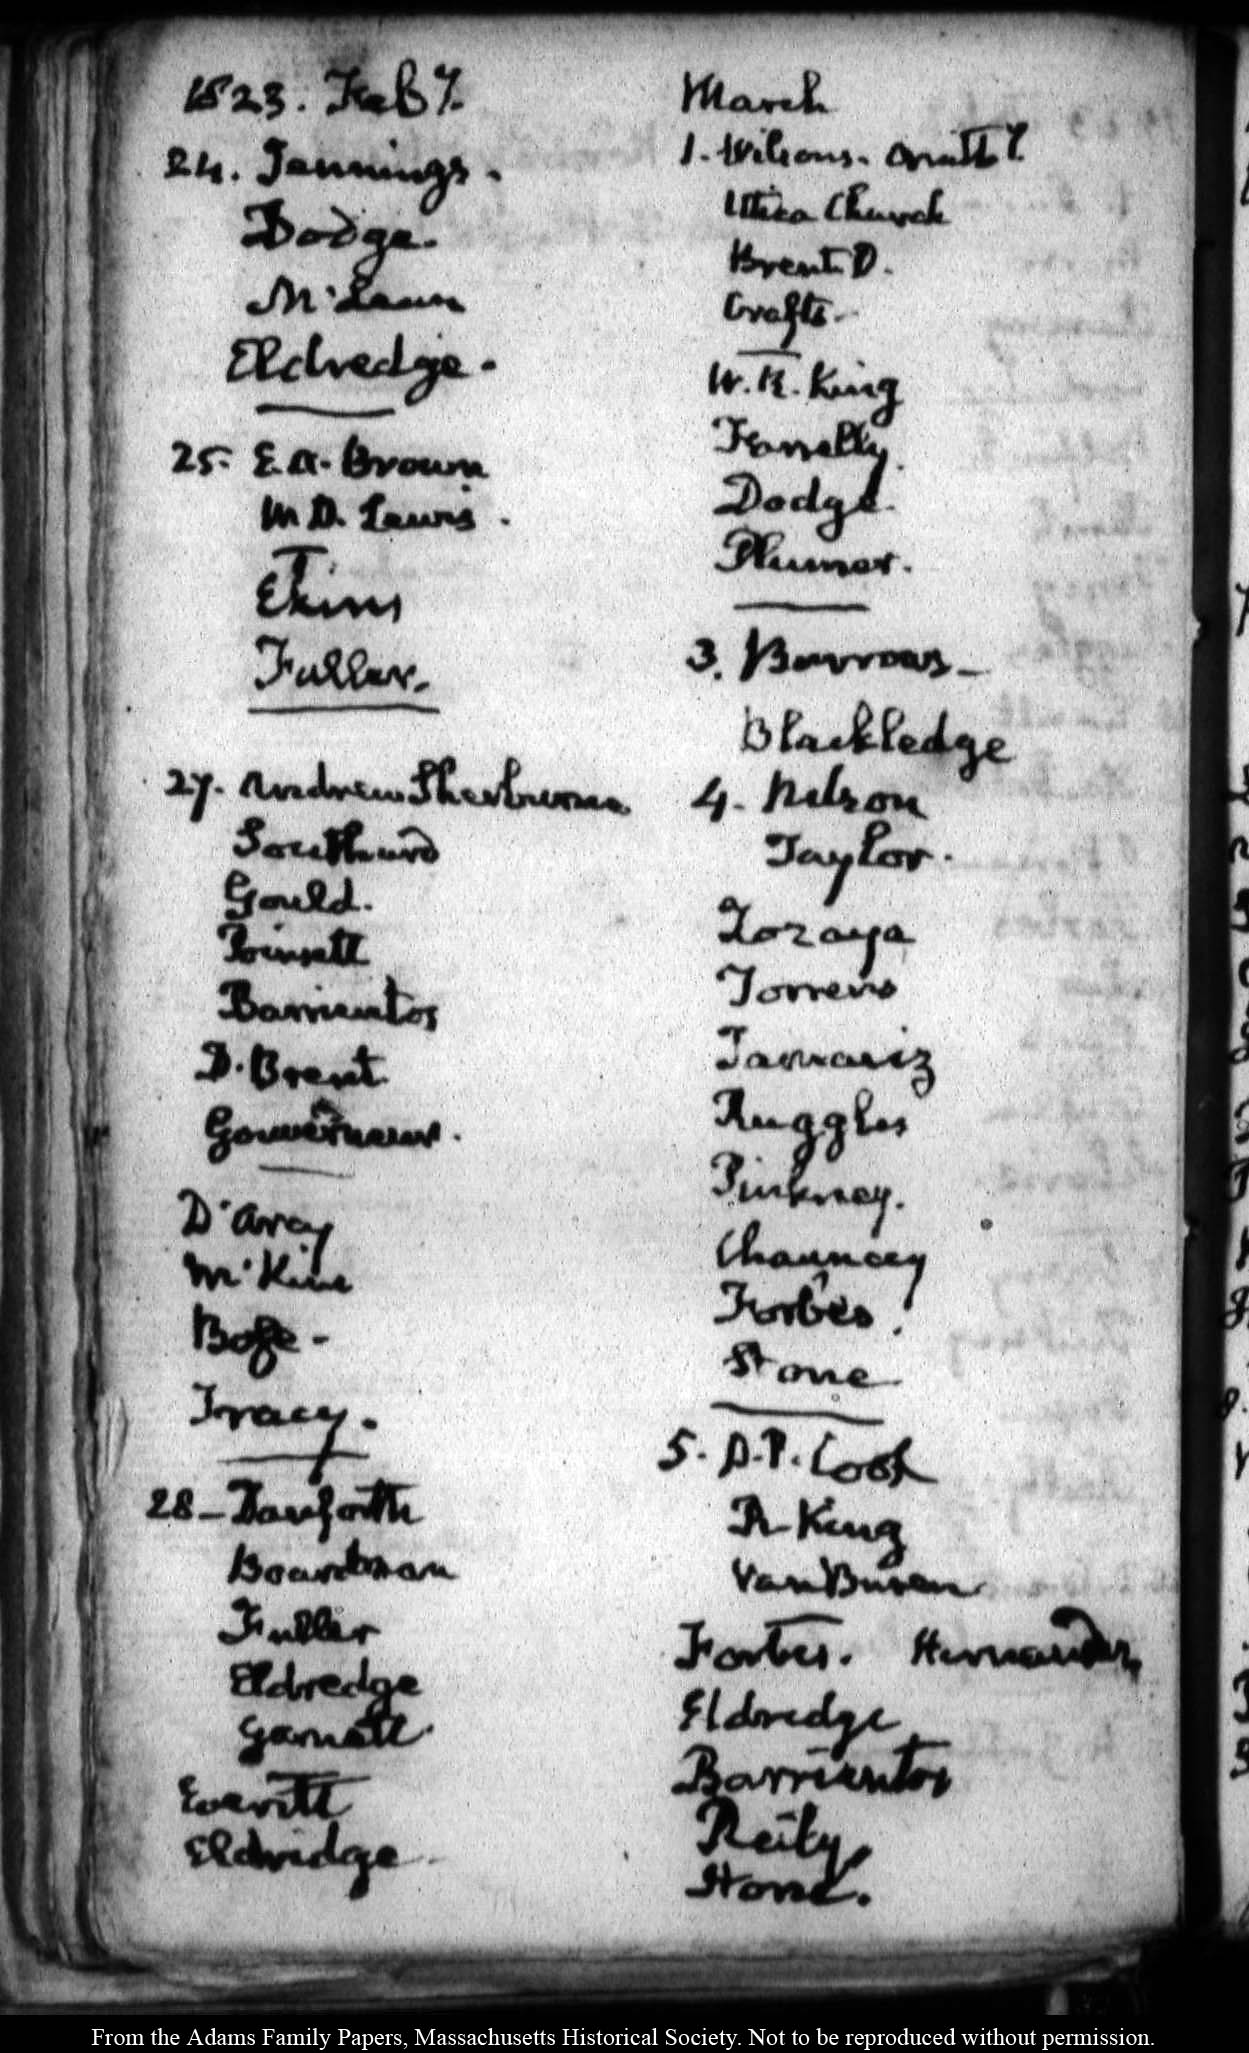 1823. Feb y.
24. Jennings.
Dodge.
McLean
Eldredge.
25. E. A. Brown
W. D. Lewis.
Ekins
Fuller.
27. Andrew Sherburne
Southard
Gould.
Poinsett
Barrientos
D. Brent
Gouverneur.
D'Arcy
McKim
Boge-
Tracy.
28- Danforth
Boardman
Fuller
Eldredge
Garnett.
Everitt
Eldridge
March
1. Wilsons. omitt d.
Utica Church
Brent D.
Crafts-
W. R. King
Farrelly.
Dodge.
Plumer.
3. Burrows-
Blackledge
4. Nelson
Taylor.
Zozaya
Torrens
Tarrariz
Ruggles
Pinkney.
Chauncey
Forbes.
Stone
5. D. P. Cook
R King
Van Buren
Forbes. Hernandez,
Eldredge
Barrientos
Reily,
Hone.
From the Adams Family Papers, Massachusetts Historical Society. Not to be reproduced without permission.